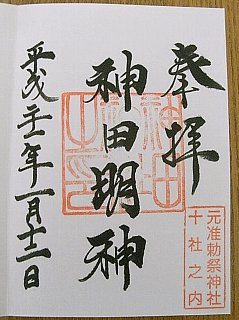 奉拝
元准勅祭神社
十社之内
神田明神
平成二十二年一月十二日